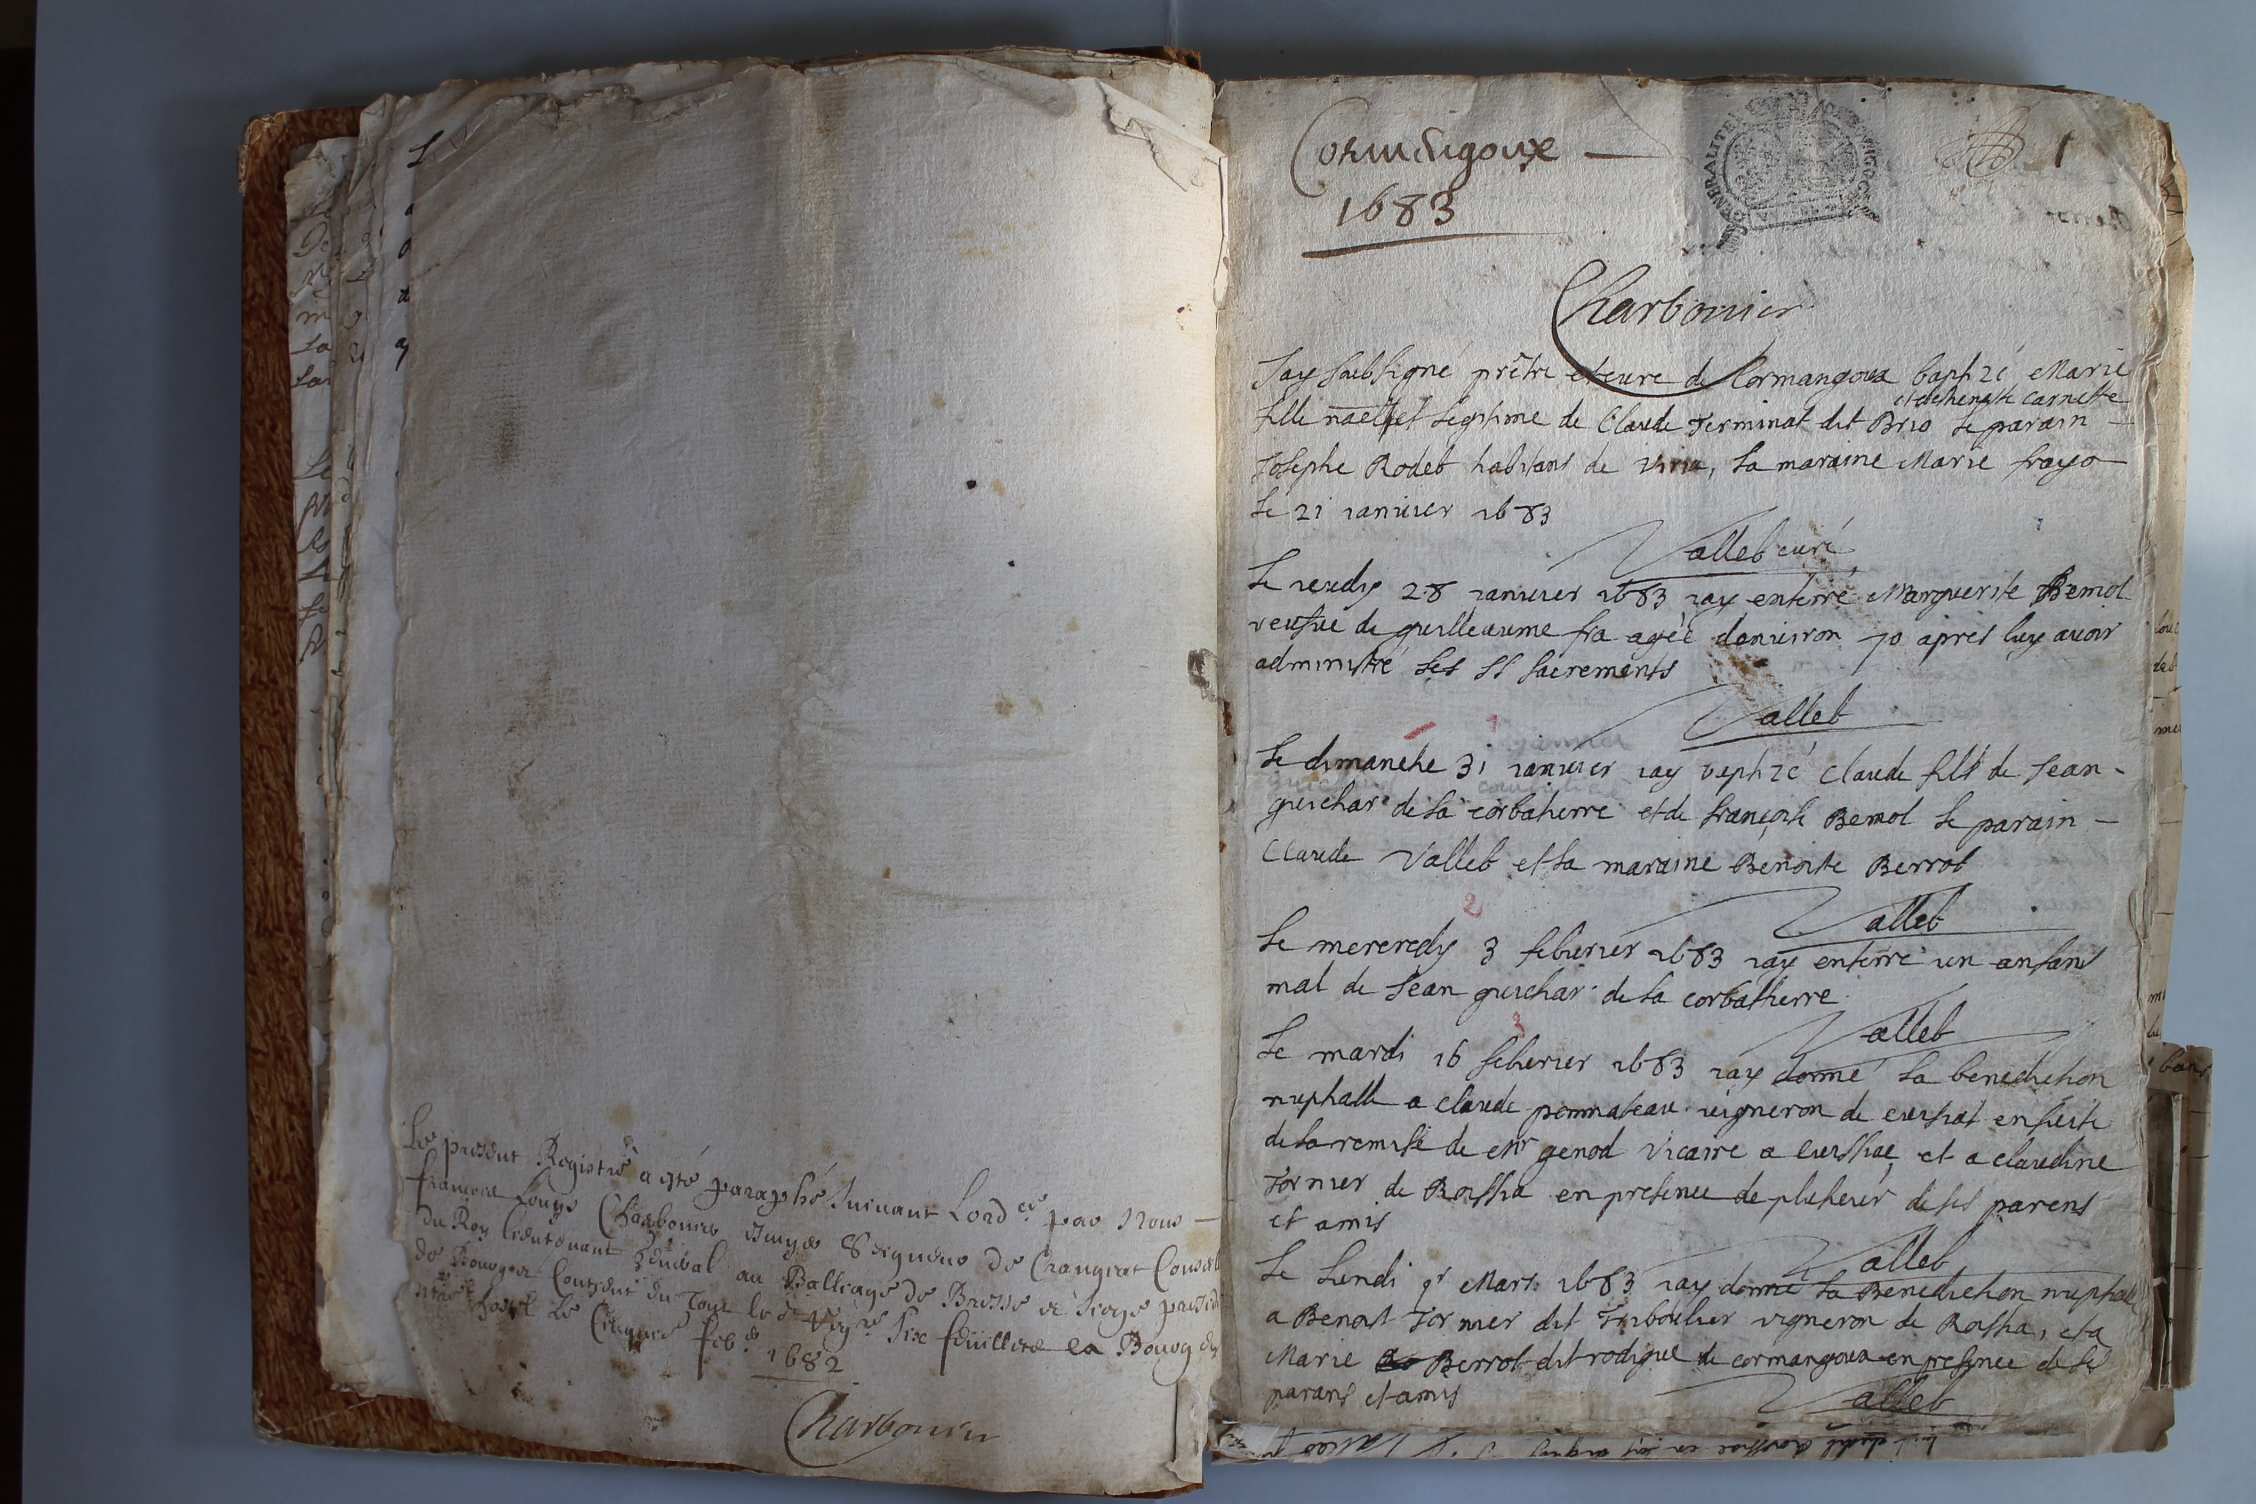 Le present Registre a esté paraphé suivant Lord.ce par Nous
francois Louys Charbonnier Seigneur de Crangeat Conseil
du Roy lieutenant general au Balliage de Bresse et siege presid
de Bourg Contenant en Tout le six feuilletz a Bourg
le Cinquie feb. 1682
Charbonier
Cormangoux
1683
1
GENERALITE
Charbonier
Jay soubsigné prêtre et cure de Cormangoux baptizé Marie
et de benoîte Carnette
fille naelle et légitime de Claude Terminat dit Brio le parain
Josephe Rodet habitant de viria, la maraine Marie frayo
le 21 ianuier 1683
Vallet curé
Le ieudy 28 ianuier 1683 iay enterré Marguerite Bemol
veufue de guilleaume fra agée denuiron 70 apres luy auoir
administré les SS sacrements
Vallet
1
Le dimanche 31 ianuier iay baptizé Claude fils de Jean
guichar de la corbatierre et de françoise Bemol le parain
Claude Vallet et la maraine Benoite Berrot
Vallet
2
Le mercredy 3 feburier 1683 iay enterré un enfant
mal de Jean guichar de la corbatierre
Vallet
3
Le mardi 16 feburier 1683 iay donné la benediction
nuptialle a claude pommateau vigneron de cuisiat en suite
de la remise de Mr genod vicaire a cuisiat, et a claudine
Tornier de Roissia en presence de plusieur de ses parens
et amis
Vallet
Le Lundi pr Mars 1683 iay donné la Benediction nuptialle
a Benoit Tornier dit vigneron de Roissia, et a
Marie Berrot dit rodique de cormangoux en presence de se
parans et amis
Vallet